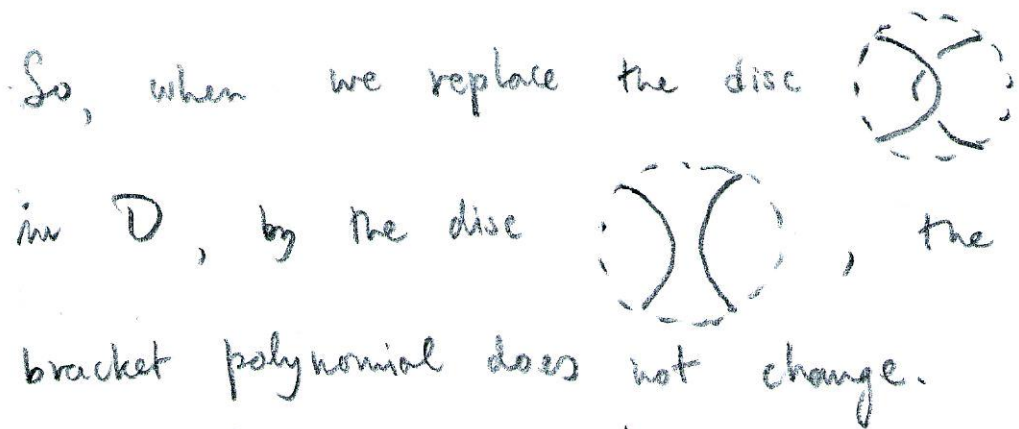 So, when we replace the disc
in D, by the disc , the
bracket polynomial does not change.